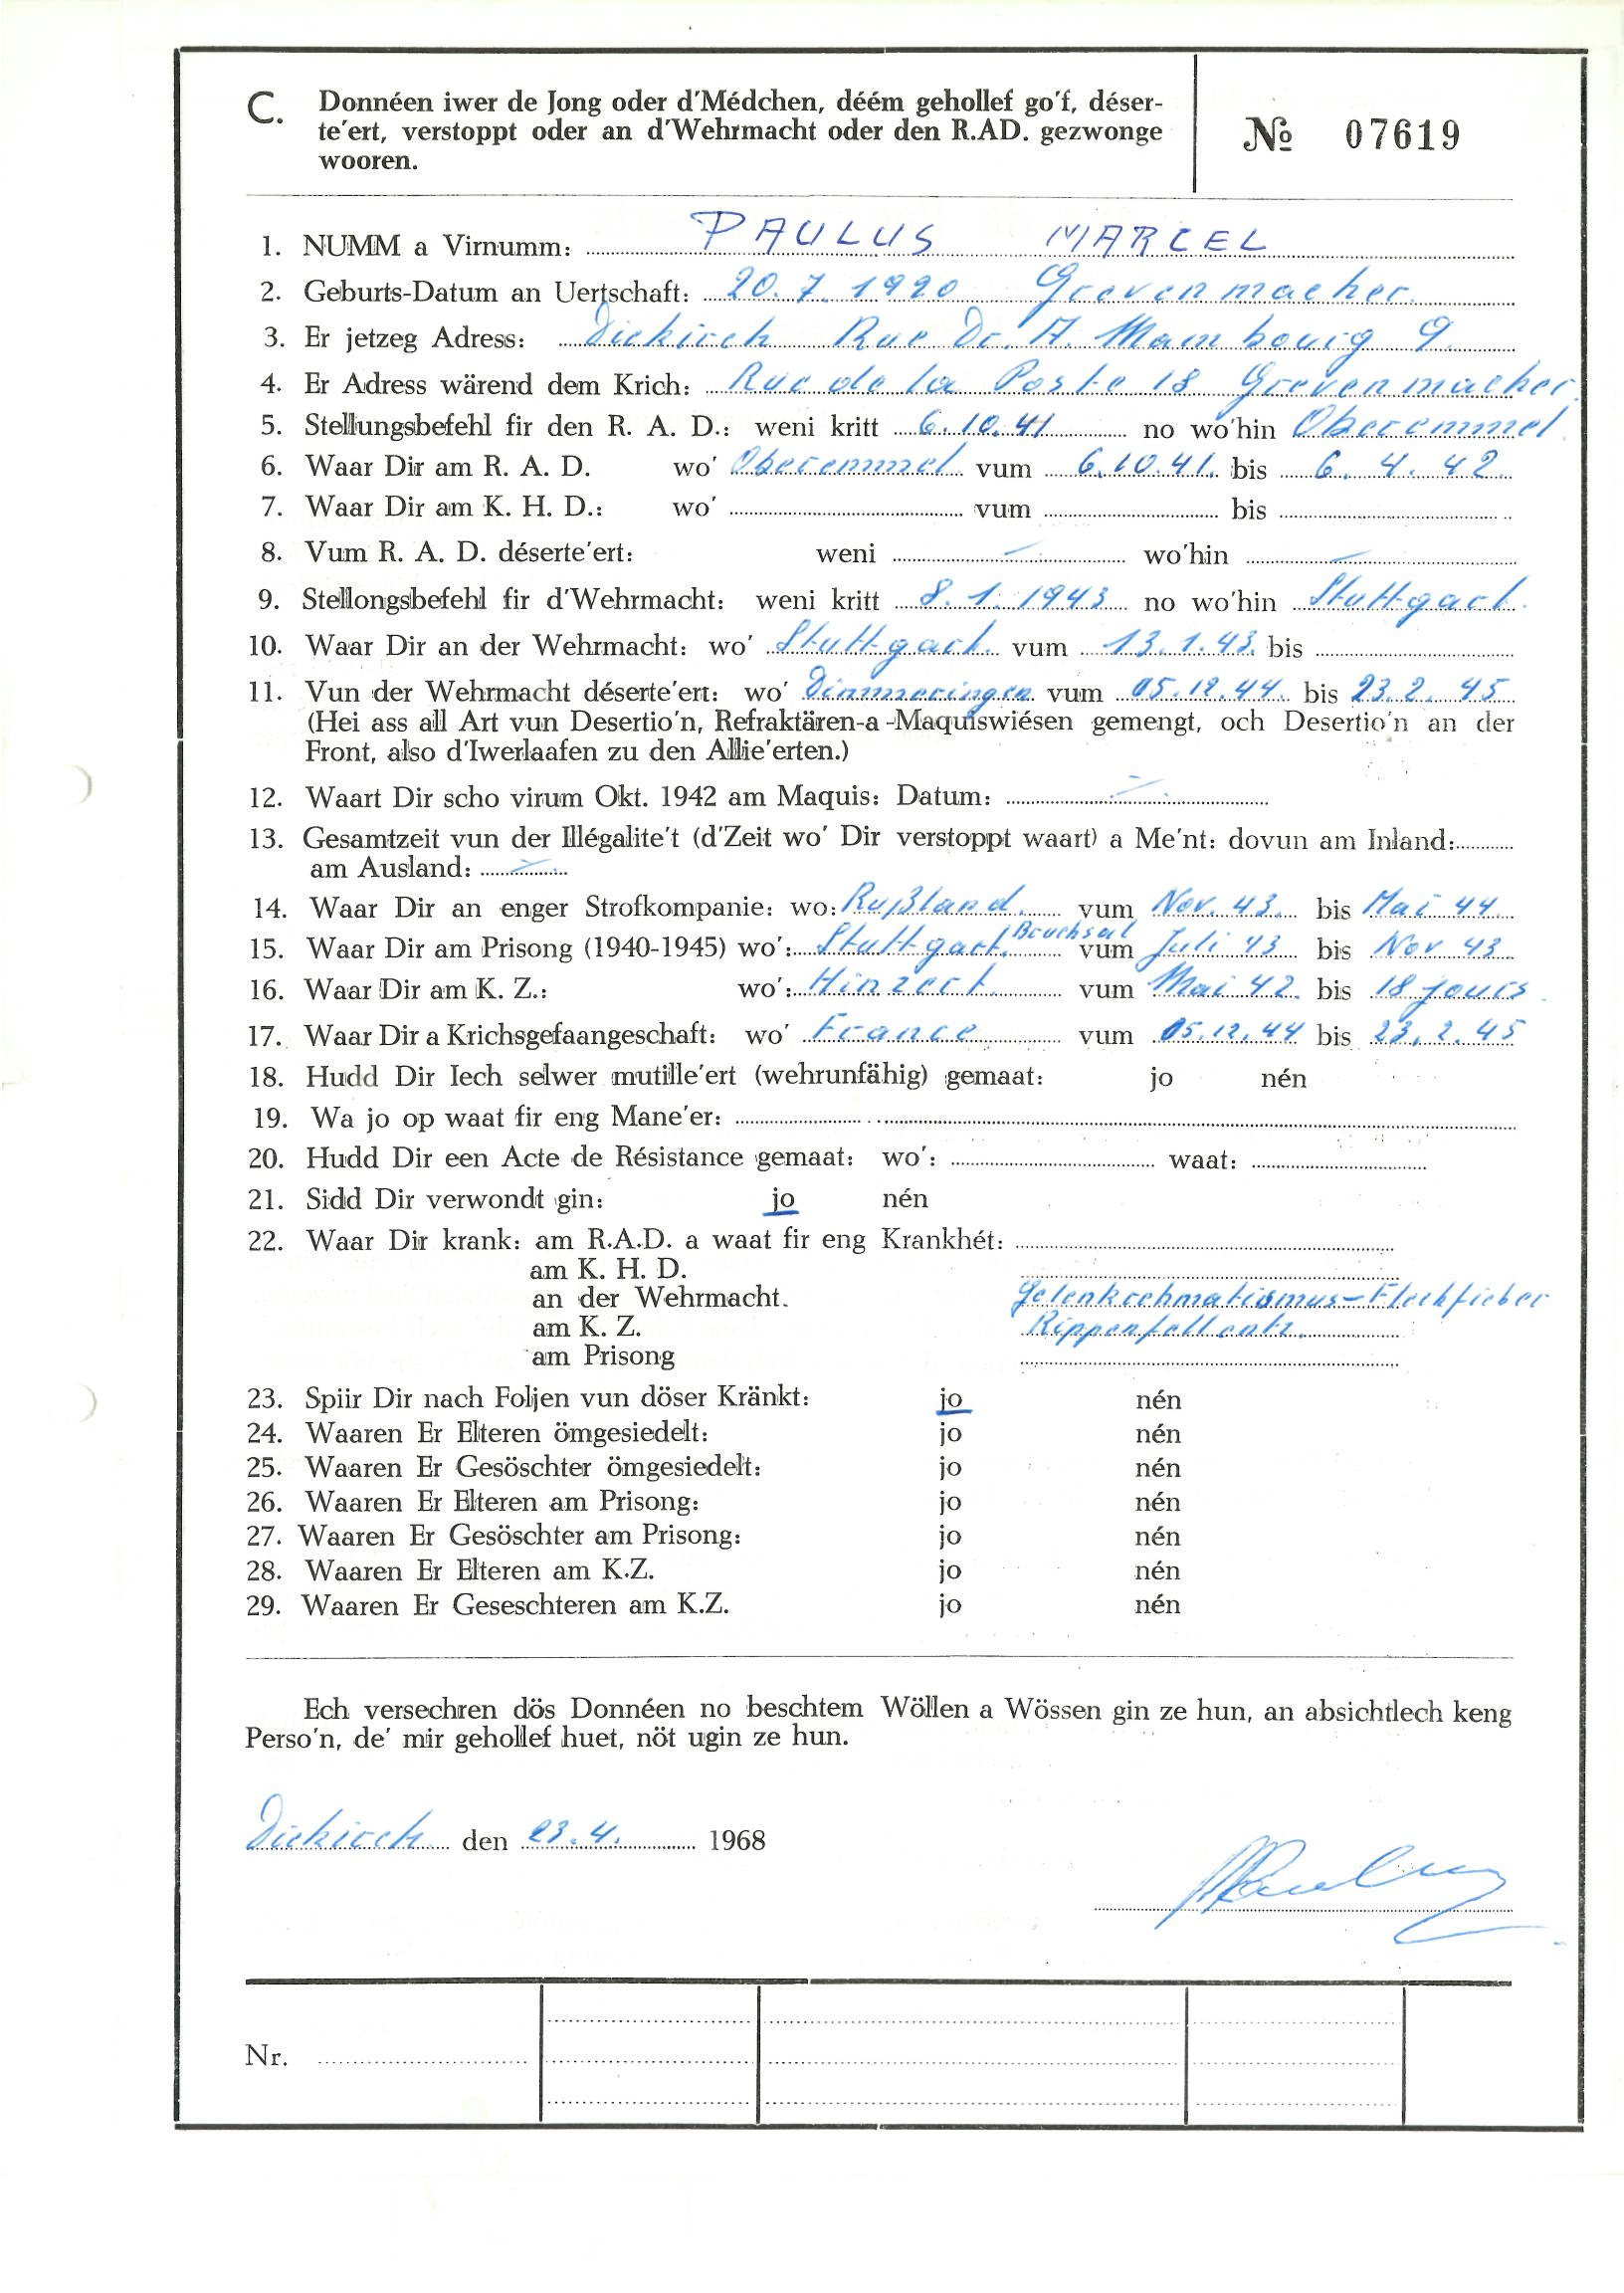 C. Donnéen iwer de Jong oder d'Médchen, déém gehollef go'f, déser-
te'ert, verstoppt oder an d'Wehrmacht oder den R.AD. gezwonge
wooren.
№ 07619
1. NUMM a Virnumm: PAULUS MARCEL
2. Geburts-Datum an Uertschaft: 20.7.1920 Grevenmacher.
3. Er jetzeg Adress: Diekirch Rue Dr. A. 9.
4. Er Adress wärend dem Krich: Rue de la Poste 18 Grevenmacher.
5. Stellungsbefehl fir den R. A. D.: weni kritt 6.10.41 no wo'hin Oberemmel.
6. Waar Dir am R. A. D. wo' Oberemmel vum 6.10.41. bis 6. 4. 42.
7. Waar Dir am K. H. D.: wo' vum bis
8. Vum R. A. D. déserte'ert: weni — wo'hin —
9. Stellongsbefehl fir d'Wehrmacht: weni kritt 8.1.1943 no wo'hin Stuttgart.
10. Waar Dir an der Wehrmacht: wo' Stuttgart. vum 13.1.43. bis
11. Vun der Wehrmacht déserte'ert: wo' Dimmeringen vum 05.12.44. bis 23.2.45
(Hei ass all Art vun Desertio'n, Refraktären-a-Maquiswiésen gemengt, och Desertio'n an der
Front, also d'Iwerlaafen zu den Allie'erten.)
12. Waart Dir scho virum Okt. 1942 am Maquis: Datum: —
13. Gesamtzeit vun der Illégalite't (d'Zeit wo' Dir verstoppt waart) a Me'nt: dovun am Inland:
am Ausland: —
14. Waar Dir an enger Strofkompanie: wo: Rußland. vum Nov. 43. bis Mai 44.
15. Waar Dir am Prisong (1940-1945) wo': Stuttgart. Bruchsal vum Juli 43 bis Nov 43
16. Waar Dir am K. Z.: wo': Hinzert. vum Mai 42. bis 18 jours.
17. Waar Dir a Krichsgefaangeschaft: wo' France vum 05.12.44 bis 23.2.45
18. Hudd Dir Iech selwer mutille'ert (wehrunfähig) gemaat: jo nén
19. Wa jo op waat fir eng Mane'er:
20. Hudd Dir een Acte de Résistance gemaat: wo': waat:
21. Sidd Dir verwondt gin: jo nén
22. Waar Dir krank: am R.A.D. a waat fir eng Krankhét:
am K. H. D.
an der Wehrmacht. Gelenkrehmatismus-Fleckfieber
am K. Z. Rippenfellentz.
am Prisong
23. Spiir Dir nach Foljen vun döser Kränkt: jo nén
24. Waaren Er Elteren ömgesiedelt: jo nén
25. Waaren Er Gesöschter ömgesiedelt: jo nén
26. Waaren Er Elteren am Prisong: jo nén
27. Waaren Er Gesöschter am Prisong: jo nén
28. Waaren Er Elteren am K.Z. jo nén
29. Waaren Er Geseschteren am K.Z. jo nén
Ech versechren dös Donnéen no beschtem Wöllen a Wössen gin ze hun, an absichtlech keng
Perso'n, de' mir gehollef huet, nöt ugin ze hun.
Diekirch den 23.4. 1968
Nr.